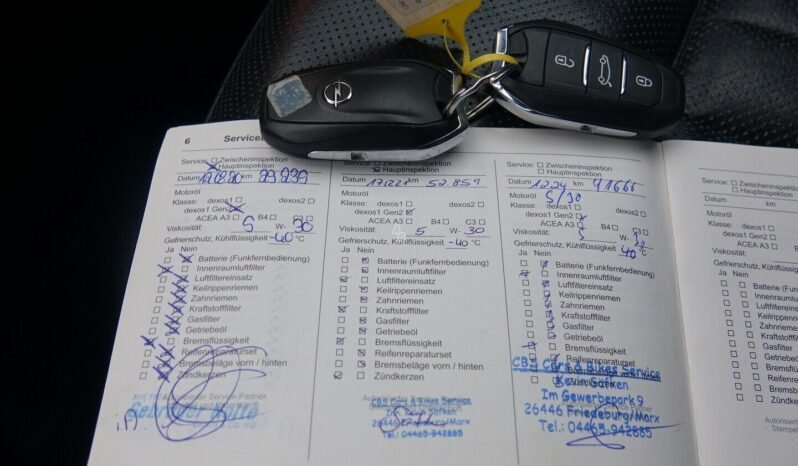 6
Service
Service: Zwischeninspektion
Hauptinspektion
Datum 29239
km
Motoröl
Klasse: dexos1
dexos1 Gen2
ACEA A3 B4 C3
Viskosität: 5 W- 30
Gefrierschutz, Kühlflüssigkeit -40 °C
Ja Nein
Batterie (Funkfernbedienung)
Innenraumluftfilter
Luftfiltereinsatz
Keilrippenriemen
Zahnriemen
Kraftstofffilter
Gasfilter
Getriebeöl
Bremsflüssigkeit
Reifenreparaturset
Bremsbeläge vorn / hinten
Zündkerzen
Service Partner
Service: Zwischeninspektion
Hauptinspektion
Datum km 52.859
Motoröl
Klasse: dexos1 dexos2
dexos1 Gen2
ACEA A3 B4 C3
Viskosität: 5 W- 30
Gefrierschutz, Kühlflüssigkeit -40 °C
Ja Nein
Batterie (Funkfernbedienung)
Innenraumluftfilter
Luftfiltereinsatz
Keilrippenriemen
Zahnriemen
Kraftstofffilter
Gasfilter
Getriebeöl
Bremsflüssigkeit
Reifenreparaturset
Bremsbeläge vorn / hinten
Zündkerzen
CBS Cars & Bikes Service
26446 Friedeburg/Marx
Tel.: 04465-942885
Service: Zwischeninspektion
Hauptinspektion
Datum km
Motoröl 5/30
Klasse: dexos1 dexos2
dexos1 Gen2
ACEA A3 B4 C3
Viskosität: 5 W-
Gefrierschutz, Kühlflüssigkeit 40 °C
Ja Nein
Batterie (Funkfernbedienung)
Innenraumluftfilter
Luftfiltereinsatz
Keilrippenriemen
Zahnriemen
Kraftstofffilter
Gasfilter
Getriebeöl
Bremsflüssigkeit
Reifenreparaturset
CBS Cars & Bikes Service
Kevin Safken
Im Gewerbepark 9
26446 Friedeburg/Marx
Tel.: 04465-942885
Service: Zwischeninspektion
Hauptinspektion
Datum km
Motoröl
Klasse: dexos1
dexos1 Gen2
ACEA A3
Viskosität:
Gefrierschutz, Kühl
Ja Nein
Batterie (Funk
Innenraumluftf
Luftfiltereinsatz
Keilrippenriem
Zahnriemen
Kraftstofffilter
Gasfilter
Getriebeöl
Bremsflüssig
Reifenrepara
Bremsbeläge
Zündkerzen
Autorisiert
- Stempe